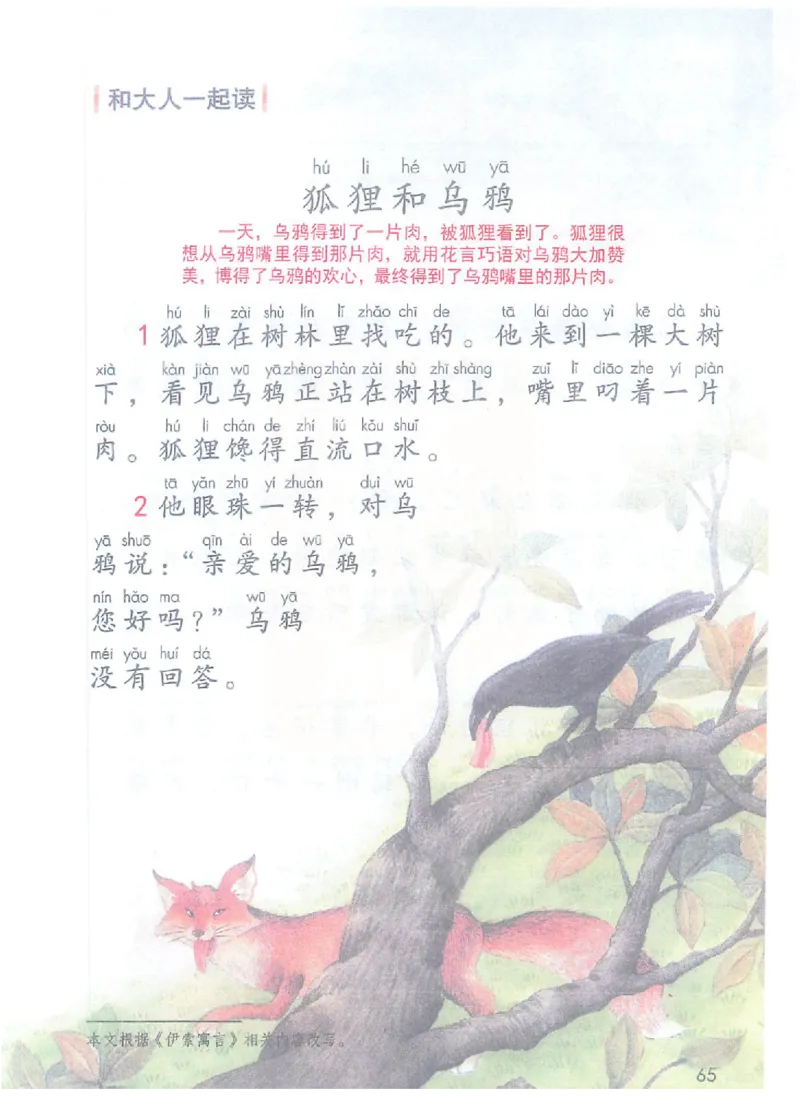 和大人一起读
hú li hé wū yā
狐狸和乌鸦
一天，乌鸦得到了一片肉，被狐狸看到了。狐狸很
想从乌鸦嘴里得到那片肉，就用花言巧语对乌鸦大加赞
美，博得了乌鸦的欢心，最终得到了乌鸦嘴里的那片肉。
hú li zài shù lín lǐ zhǎo chī de tā lái dào yì kē dà shù
1 狐狸在树林里找吃的。他来到一棵大树
xià kàn jiàn wū yā zhèng zhàn zài shù zhī shàng zuǐ lǐ diāo zhe yí piàn
下，看见乌鸦正站在树枝上，嘴里叼着一片
ròu hú li chán de zhí liú kǒu shuǐ
肉。狐狸馋得直流口水。
tā yǎn zhū yí zhuàn duì wū
2 他眼珠一转，对乌
yā shuō qīn ài de wū yā
鸦说：“亲爱的乌鸦，
nín hǎo ma wū yā
您好吗？”乌鸦
méi yǒu huí dá
没有回答。
本文根据《伊索寓言》相关内容改写。
65